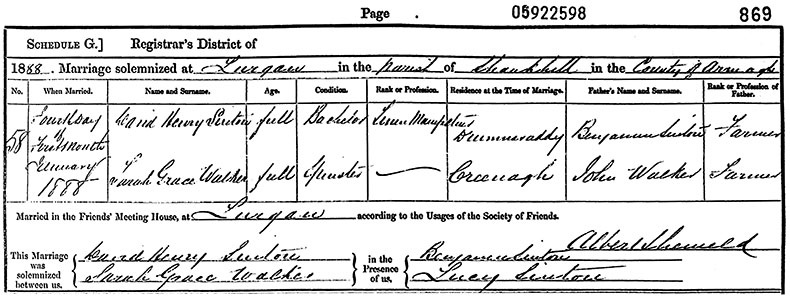 Page 05922598 869
SCHEDULE G.] Registrar's District of
1888. Marriage solemnized at Lurgan in the parish of Shankhill in the County of Armagh
No. When Married. Name and Surname. Age. Condition. Rank or Profession. Residence at the Time of Marriage. Father's Name and Surname. Rank or Profession of Father.
58 Fourth day of First Month January 1888 David Henry Sinton full Bachelor Linen Drumnavaddy Benjamin Sinton Farmer
Sarah Grace Walker full Spinster — Creenagh John Walker Farmer
Married in the Friends' Meeting House, at Lurgan according to the Usages of the Society of Friends.
This Marriage was solemnized between us, David Henry Sinton Sarah Grace Walker in the Presence of us, Benjamin Sinton Albert Lucy Sinton